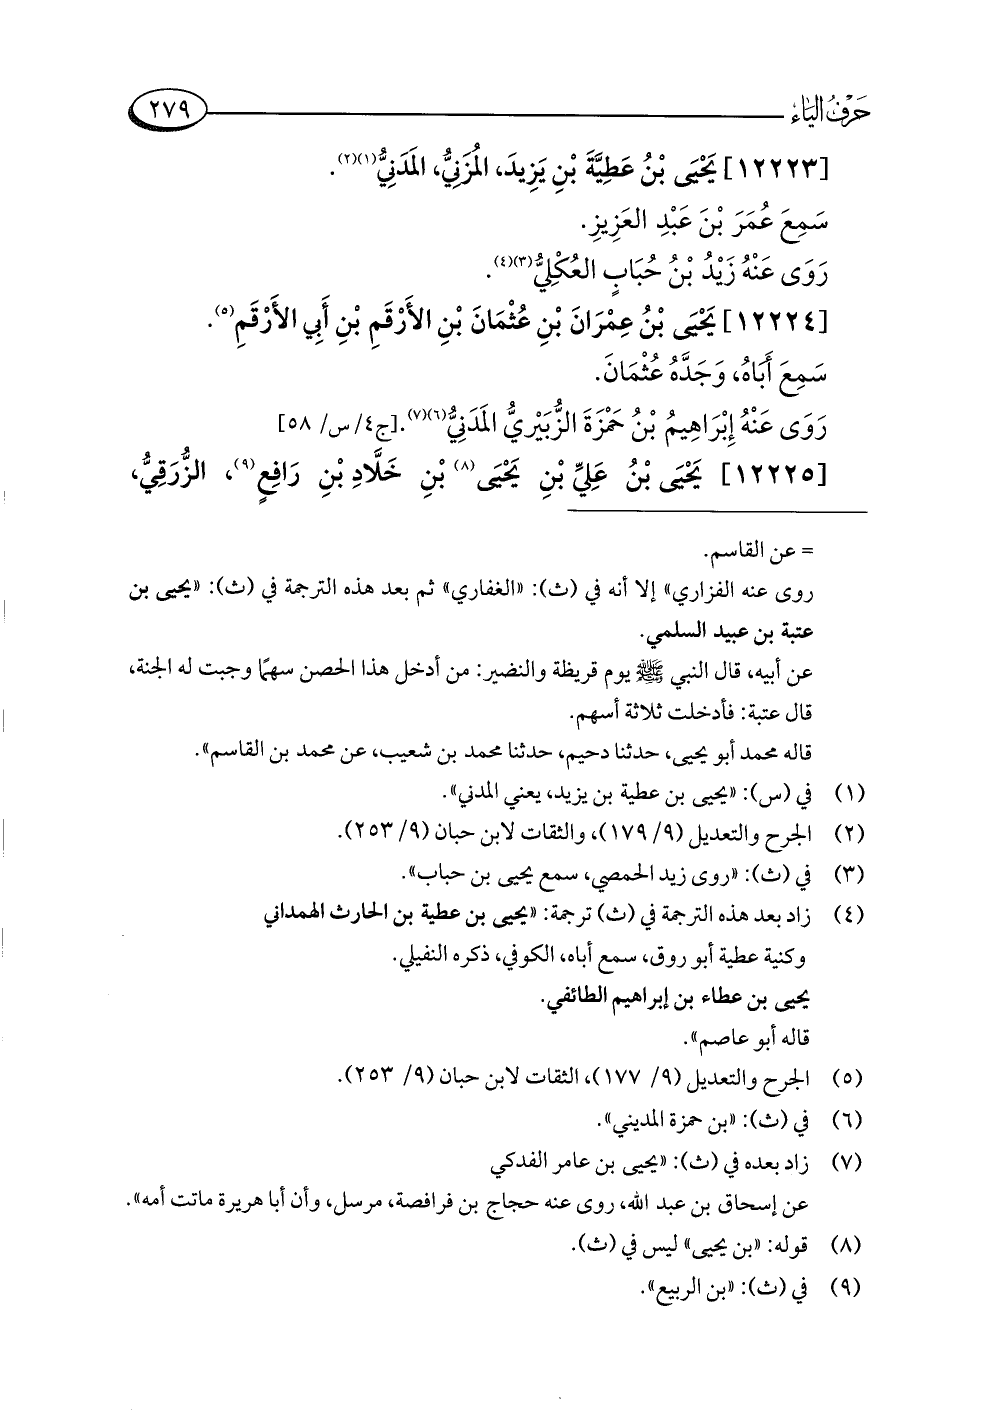 حَرْفُ اليَاءِ ٢٧٩
[١٢٢٢٣] يَحْيَى بْنُ عَطِيَّةَ بْنِ يَزِيدَ، المُزَنِيُّ، المَدَنِيُّ(١)(٢).
سَمِعَ عُمَرَ بْنَ عَبْدِ العَزِيزِ.
رَوَى عَنْهُ زَيْدُ بْنُ حُبَابٍ العُكْلِيُّ(٣)(٤).
[١٢٢٢٤] يَحْيَى بْنُ عِمْرَانَ بْنِ عُثْمَانَ بْنِ الأَرْقَمِ بْنِ أَبِي الأَرْقَمِ(٥).
سَمِعَ أَبَاهُ، وَجَدَّهُ عُثْمَانَ.
رَوَى عَنْهُ إِبْرَاهِيمُ بْنُ حَمْزَةَ الزُّبَيْرِيُّ المَدَنِيُّ(٦)(٧).[ج٤/ س/ ٥٨]
[١٢٢٢٥] يَحْيَى بْنُ عَلِيِّ بْنِ يَحْيَى(٨) بْنِ خَلَّادِ بْنِ رَافِعٍ(٩)، الزُّرَقِيُّ،
= عن القاسم.
روى عنه الفزاري» إلا أنه في (ث): «الغفاري» ثم بعد هذه الترجمة في (ث): «يحيى بن
عتبة بن عبيد السلمي.
عن أبيه، قال النبي ﷺ يوم قريظة والنضير: من أدخل هذا الحصن سهمًا وجبت له الجنة،
قال عتبة: فأدخلت ثلاثة أسهم.
قاله محمد أبو يحيى، حدثنا دحيم، حدثنا محمد بن شعيب، عن محمد بن القاسم».
(١) في (س): «يحيى بن عطية بن يزيد، يعني المدني».
(٢) الجرح والتعديل (٩/ ١٧٩)، والثقات لابن حبان (٩/ ٢٥٣).
(٣) في (ث): «روى زيد الحمصي، سمع يحيى بن حباب».
(٤) زاد بعد هذه الترجمة في (ث) ترجمة: «يحيى بن عطية بن الحارث الهمداني
وكنية عطية أبو روق، سمع أباه، الكوفي، ذكره النفيلي.
يحيى بن عطاء بن إبراهيم الطائفي.
قاله أبو عاصم».
(٥) الجرح والتعديل (٩/ ١٧٧)، الثقات لابن حبان (٩/ ٢٥٣).
(٦) في (ث): «بن حمزة المديني».
(٧) زاد بعده في (ث): «يحيى بن عامر الفدكي
عن إسحاق بن عبد الله، روى عنه حجاج بن فرافصة، مرسل، وأن أبا هريرة ماتت أمه».
(٨) قوله: «بن يحيى» ليس في (ث).
(٩) في (ث): «بن الربيع».